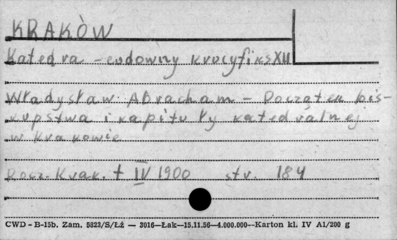 KRAKÒW
Katedra - cudowny krucyfiks XII
Władysław Abracham - Początek bis-
kupstwa i kapituły katedralnej
w Krakowie
Rocz. Krak. t IV 1900 str. 184
CWD - B-15b. Zam. 5823/S/Łż — 3016—Łak—15.11.56—4.000.000—Karton kl. IV A1/200 g